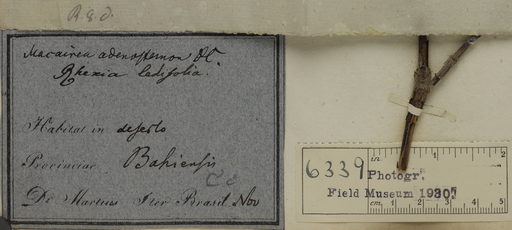 Macairea adenostemon DC.
Rhexia ledifolia.
Habitat in deserto
Provinciae Bahiensis
De Martius Iter Brasil. Nov
6339
Photogr.
Field Museum 1930
in.
cm. 1 2 3 4 5